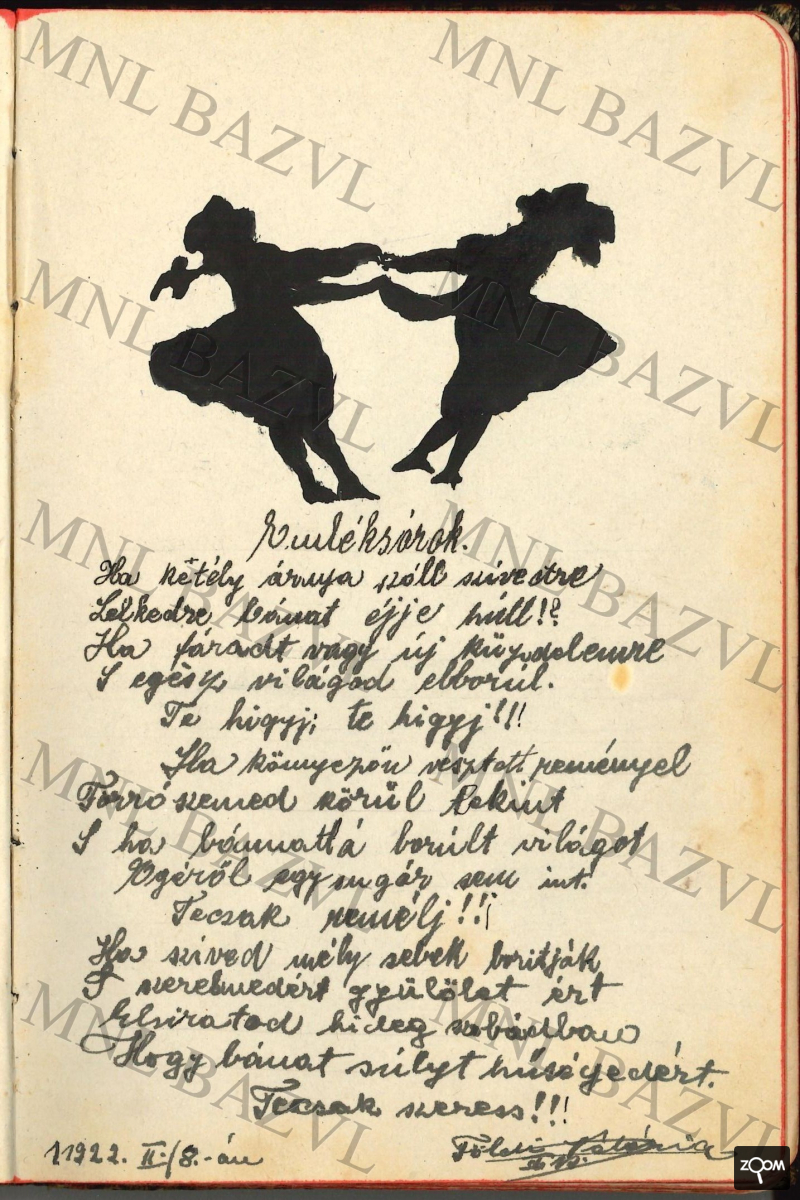 MNL BAZVL
Emléksórok.
Ha kétély árnya száll szívedre
Lelkedre bánat éjje húll!?
Ha fáradt vagy új küzdelemre
S egész világod elborul.
Te higyj; te higyj!!!
Ha könnyezőn vesztett reményel
Forró szemed körül tekint
S ha bánnattá borúlt világot
Egéről egy sugár sem int!
Tecsak remélj!!!
Ha szíved mély sebek boritják
S szerelmedért gyülölet ért
Elsiratod hideg szobádban
Hogy bánat súlyt hűségedért.
Tecsak szeress!!!
11922. II./8.-án
Földi
ZOOM